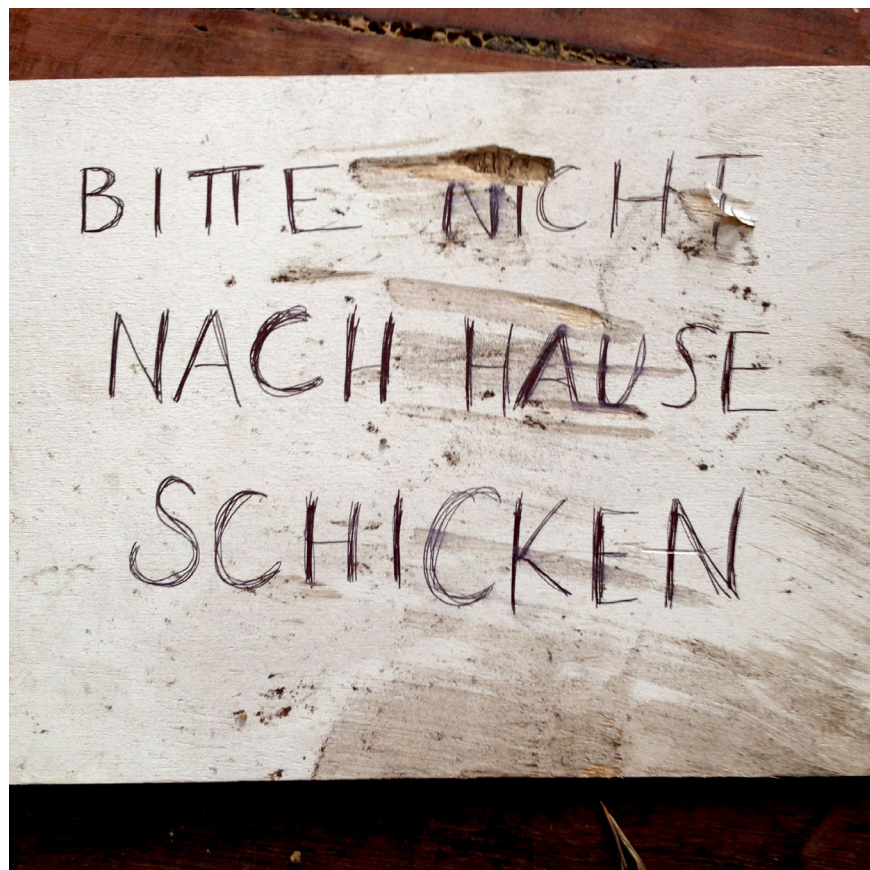 BITTE NICHT
NACH HAUSE
SCHICKEN